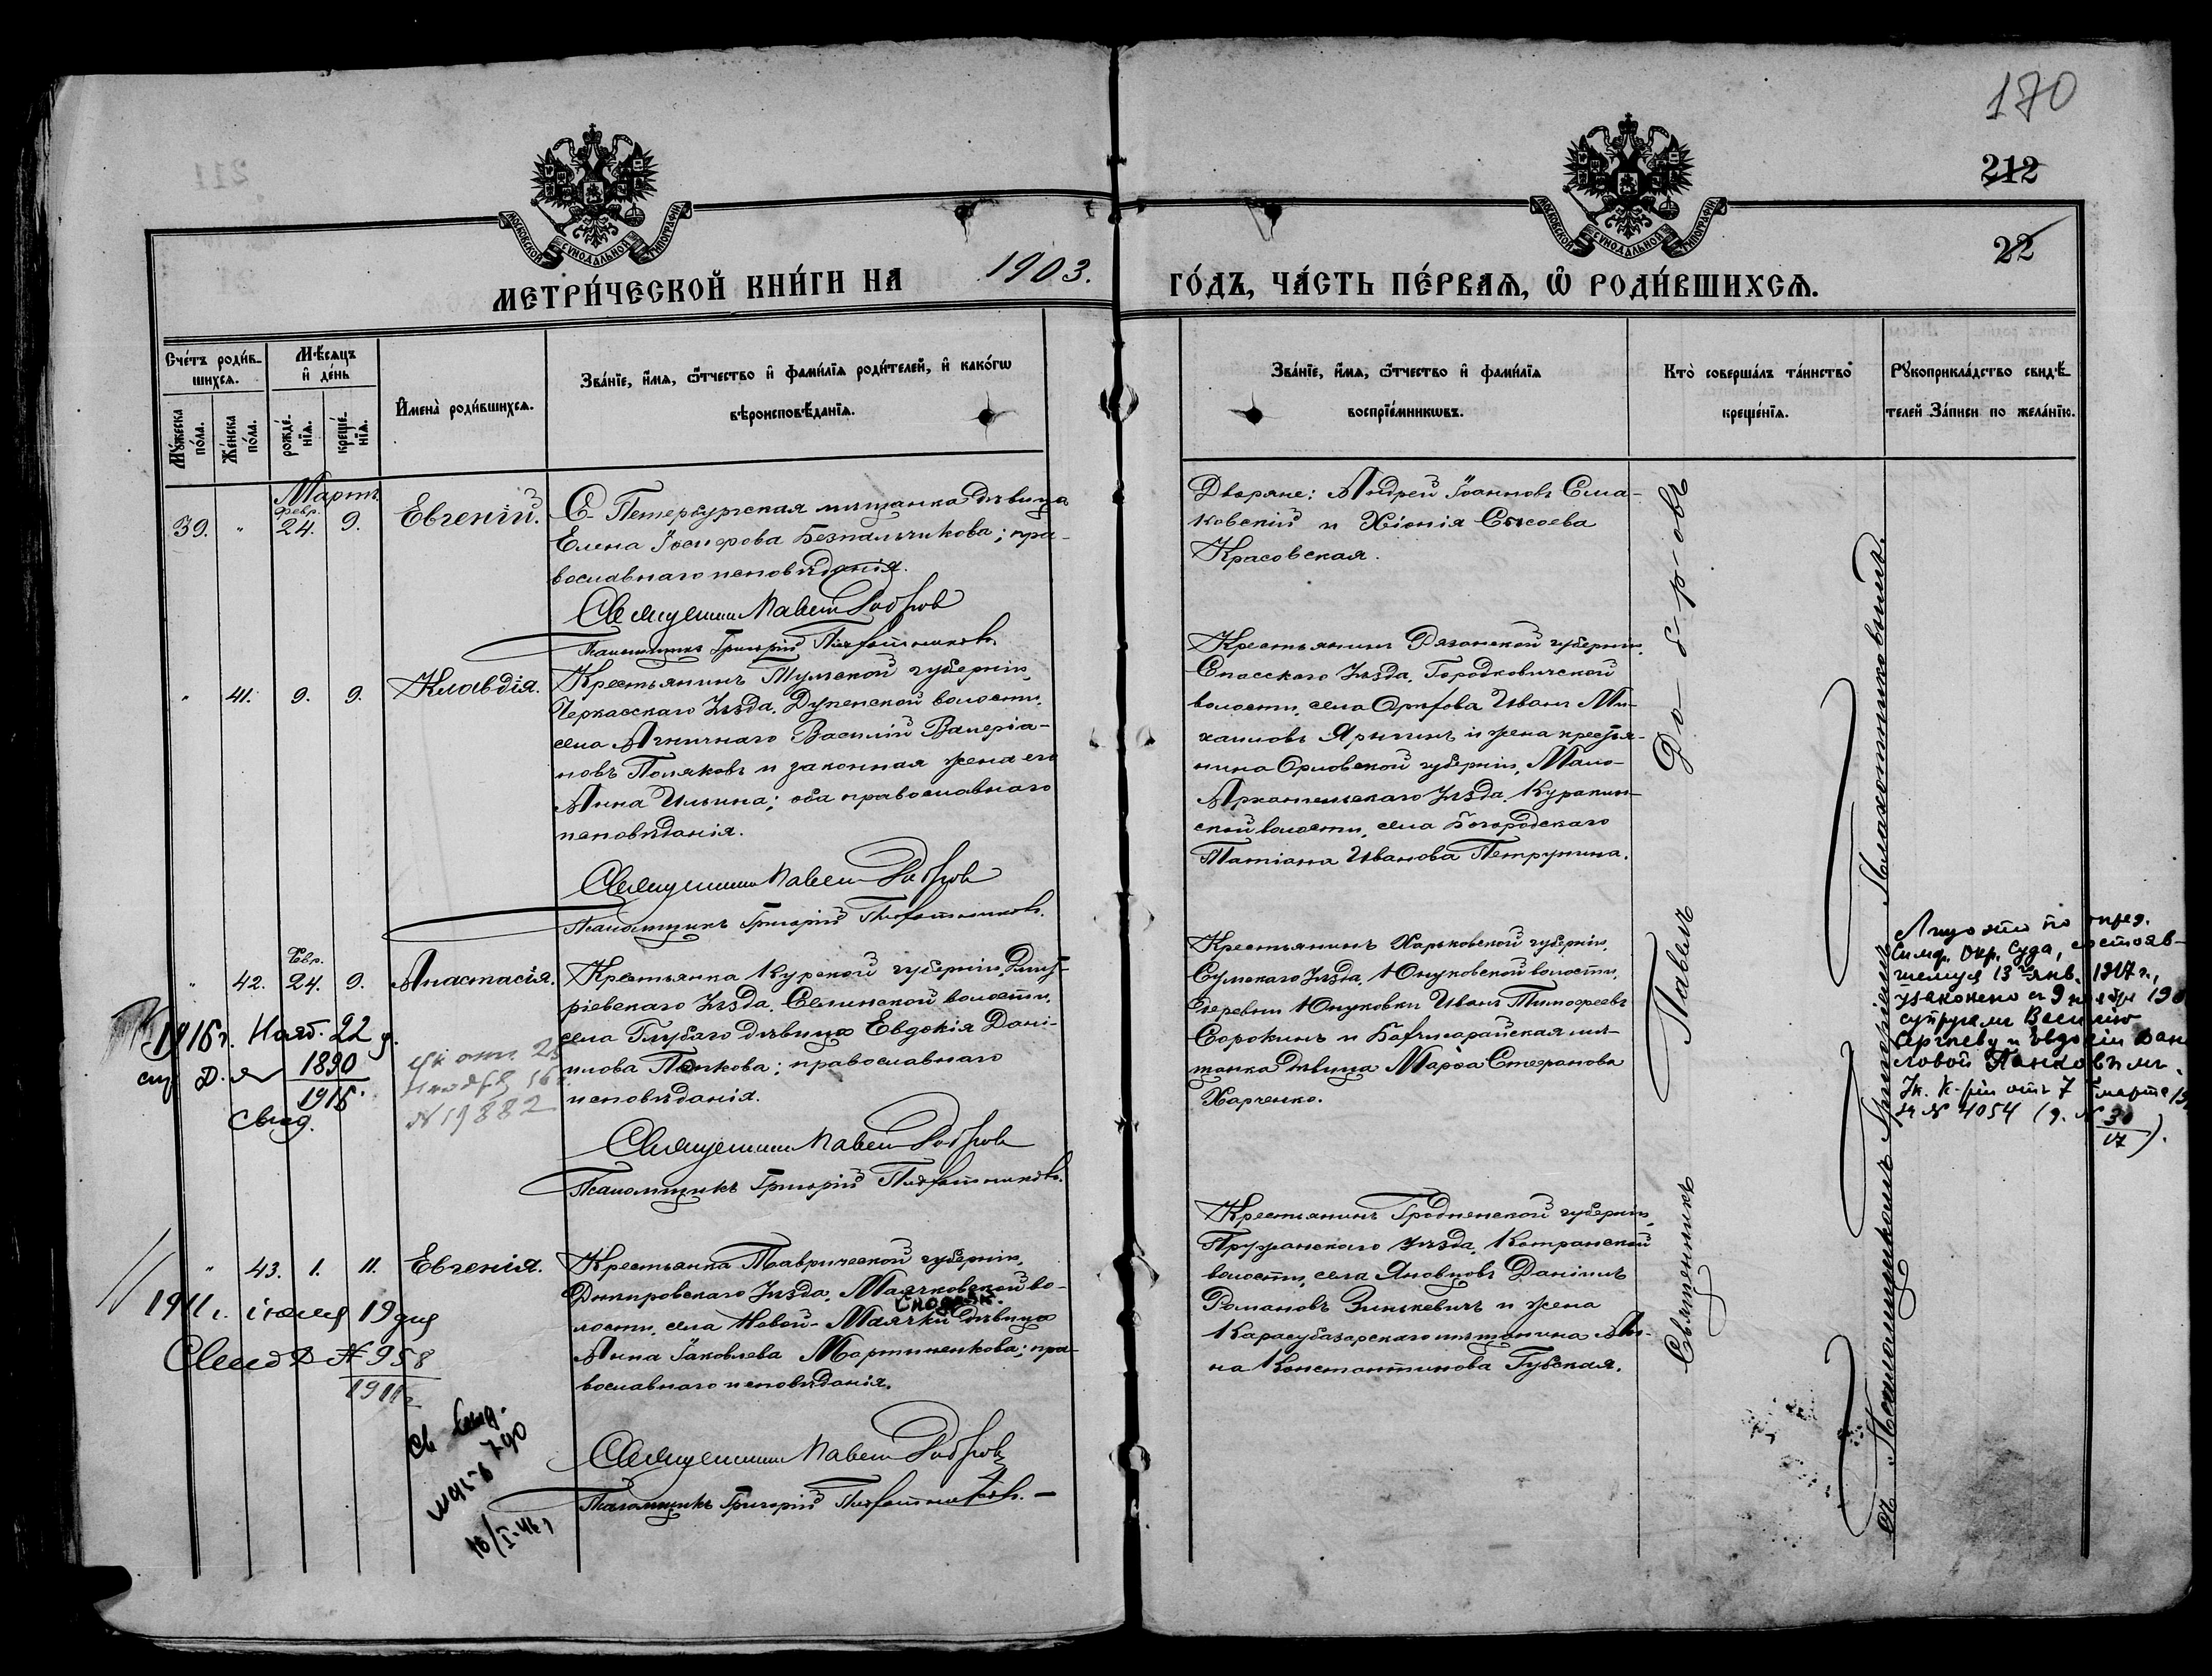 170
212
22
МОСКОВСКОЙ СѴНОДАЛЬНОЙ ТИПОГРАФІИ
МОСКОВСКОЙ СѴНОДАЛЬНОЙ ТИПОГРАФІИ
МЕТРИ́ЧЕСКОЙ КНИ́ГИ НА 1903. ГО́ДЪ, ЧА́СТЬ ПЕ́РВАѦ, Ѡ҆ РОДИ́ВШИХСѦ.
Сче́тъ роди́в-
шихсѧ.
Мꙋ́жеска
по́ла.
Же́нска
по́ла.
Мѣ́сѧцъ
и҆ де́нь
рожде́-
нїѧ.
креще́-
нїѧ.
И҆мена̀ роди́вшихсѧ.
Зва́нїе, и҆́мѧ, ѻ҆́тчество и҆ фами́лїѧ роди́телей, и҆ како́гѡ
вѣроисповѣ́данїѧ.
Зва́нїе, и҆́мѧ, ѻ҆́тчество и҆ фами́лїѧ
воспрїе́мникѡвъ.
Кто̀ соверша́лъ та́инство
креще́нїѧ.
Рꙋкоприкла́дство свидѣ́-
телей за́писи по жела́нїю.
Мартъ
39. " Февр. 24. 9. Евгеній.
С-Петербургская мѣщанка дѣвица
Елена Іосифова Безпальчикова; пра-
вославнаго исповѣданія.
Священникъ Павелъ Добровъ
Псаломщикъ Григорій Плахотниковъ.
Дворяне: Андрей Іоанновъ Сма-
ковскій и Хіонія Сысоева
Красовская.
" 41. 9. 9. Клавдія.
Крестьянинъ Тульской губерніи,
Черкасскаго уѣзда, волости,
села Василій Валеріа-
новъ Поляковъ и законная жена его
Анна Ильина; оба православнаго
исповѣданія.
Священникъ Павелъ Добровъ
Псаломщикъ Григорій Плахотниковъ.
Крестьянинъ Рязанской губерніи,
Спасскаго уѣзда, Городковической
волости, села Иванъ Ми-
хаиловъ Ярыгинъ и жена крестья-
нина Орловской губерніи, Мало-
Архангельскаго уѣзда, Куракин-
ской волости, села Богородскаго
Татіана Иванова Петрунина.
" 42. Февр. 24. 9. Анастасія.
Крестьянка Курской губерніи, Дмит-
ріевскаго уѣзда, Селинской волости,
села дѣвица Евдокія Дані-
илова Панкова; православнаго
исповѣданія.
Священникъ Павелъ Добровъ
Псаломщикъ Григорій Плахотниковъ.
Крестьянинъ Харьковской губерніи,
Сумскаго уѣзда, Юнуковской волости,
деревни Юнуковки Иванъ Тимоѳеевъ
Сорокинъ и Бахчисарайская мѣ-
щанка дѣвица Марѳа Стефанова
Харченко.
1916 г. Нояб. 22 д.
1890
1916
Свид.
№ 19882
по опред.
Симф. Окр. Суда, состояв-
шемуся 13 янв. 1917 г.,
узаконено
супругами Василію
Сергѣеву и Евдокіи Дан
ловой Панковымъ.
Ук. К-ріи отъ 7 марта
за № 4054 (д. № 30
17).
" 43. 1. 11. Евгенія.
Крестьянка Таврической губерніи,
Днѣпровскаго уѣзда, Маячковской во-
лости, села Новой-Маячки дѣвица
Анна Іаковлева Мартиненкова; пра-
вославнаго исповѣданія.
Священникъ Павелъ Добровъ
Псаломщикъ Григорій Плахотниковъ. —
Крестьянинъ Гродненской губерніи,
Пружанскаго уѣзда, Котранской
волости, села Яновцовъ Даніилъ
Романовъ Зинькевичъ и жена
Карасубазарскаго мѣщанина Ан-
на Константинова Губская.
1911 г. іюля 19 дня
№ 958
1911 г.
790
10/I-46 г
Священникъ Павелъ До-б-р-овъ
Съ Псаломщикомъ Григоріемъ Плахотниковымъ.